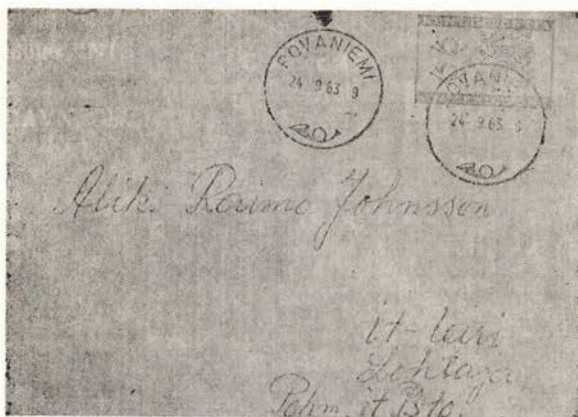 ROVANIEMI
24.9.63 9
OVANIE
24.9.63 9
Alik. Raimo Johnsson
it-leiri
Lohtaja